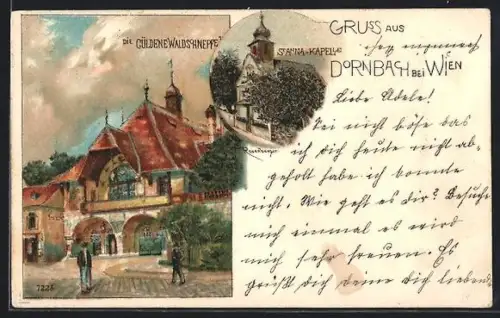 DIE GÜLDENE WALDSCHNEPFE
ST ANNA-KAPELLE
GRUSS AUS
DORNBACH BEI WIEN
Liebe Adele!
Sei nicht böse das
ich dich heute nicht ab-
geholt habe ich konnte
nicht. Wie geht es dir? Besuche
mich einmal es wird
mich sehr freuen. Es
grüßt dich deine dich liebende
7228